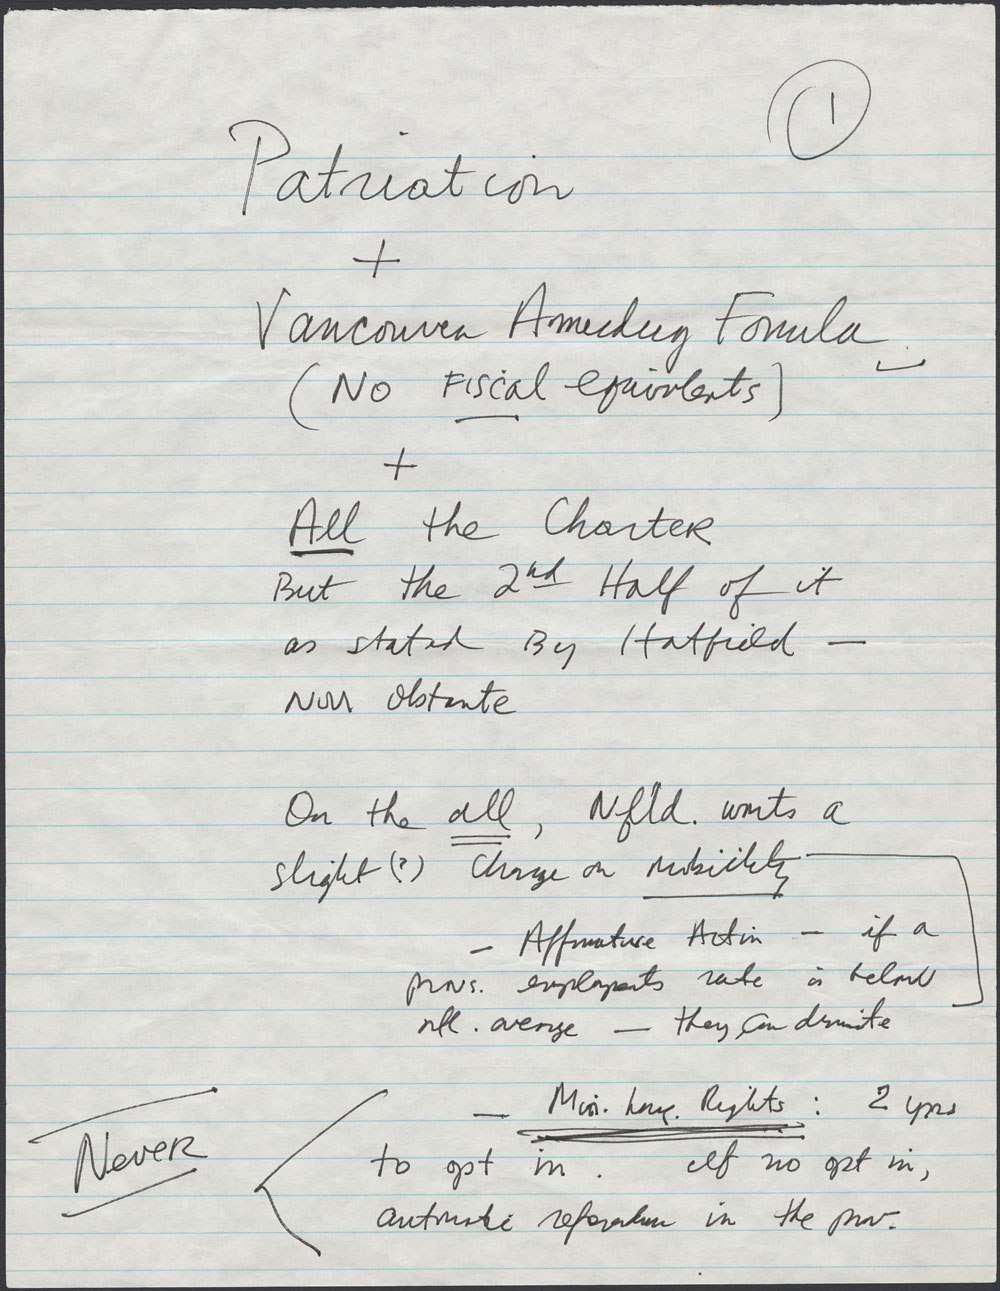 1
Patriation
+
Vancouver Amending Formula
(No Fiscal equivalents)
+
All the Charter
But the 2nd Half of it
as stated By Hatfield —
Non obstante
On the all, Nfld. wants a
slight (?) Change on mobility
- Affirmative Action - if a
prov. employments rate is below
ntl. average — they can
- Min. Lang. Rights : 2 yrs
Never
to opt in. If no opt in,
automatic referendum in the prov.